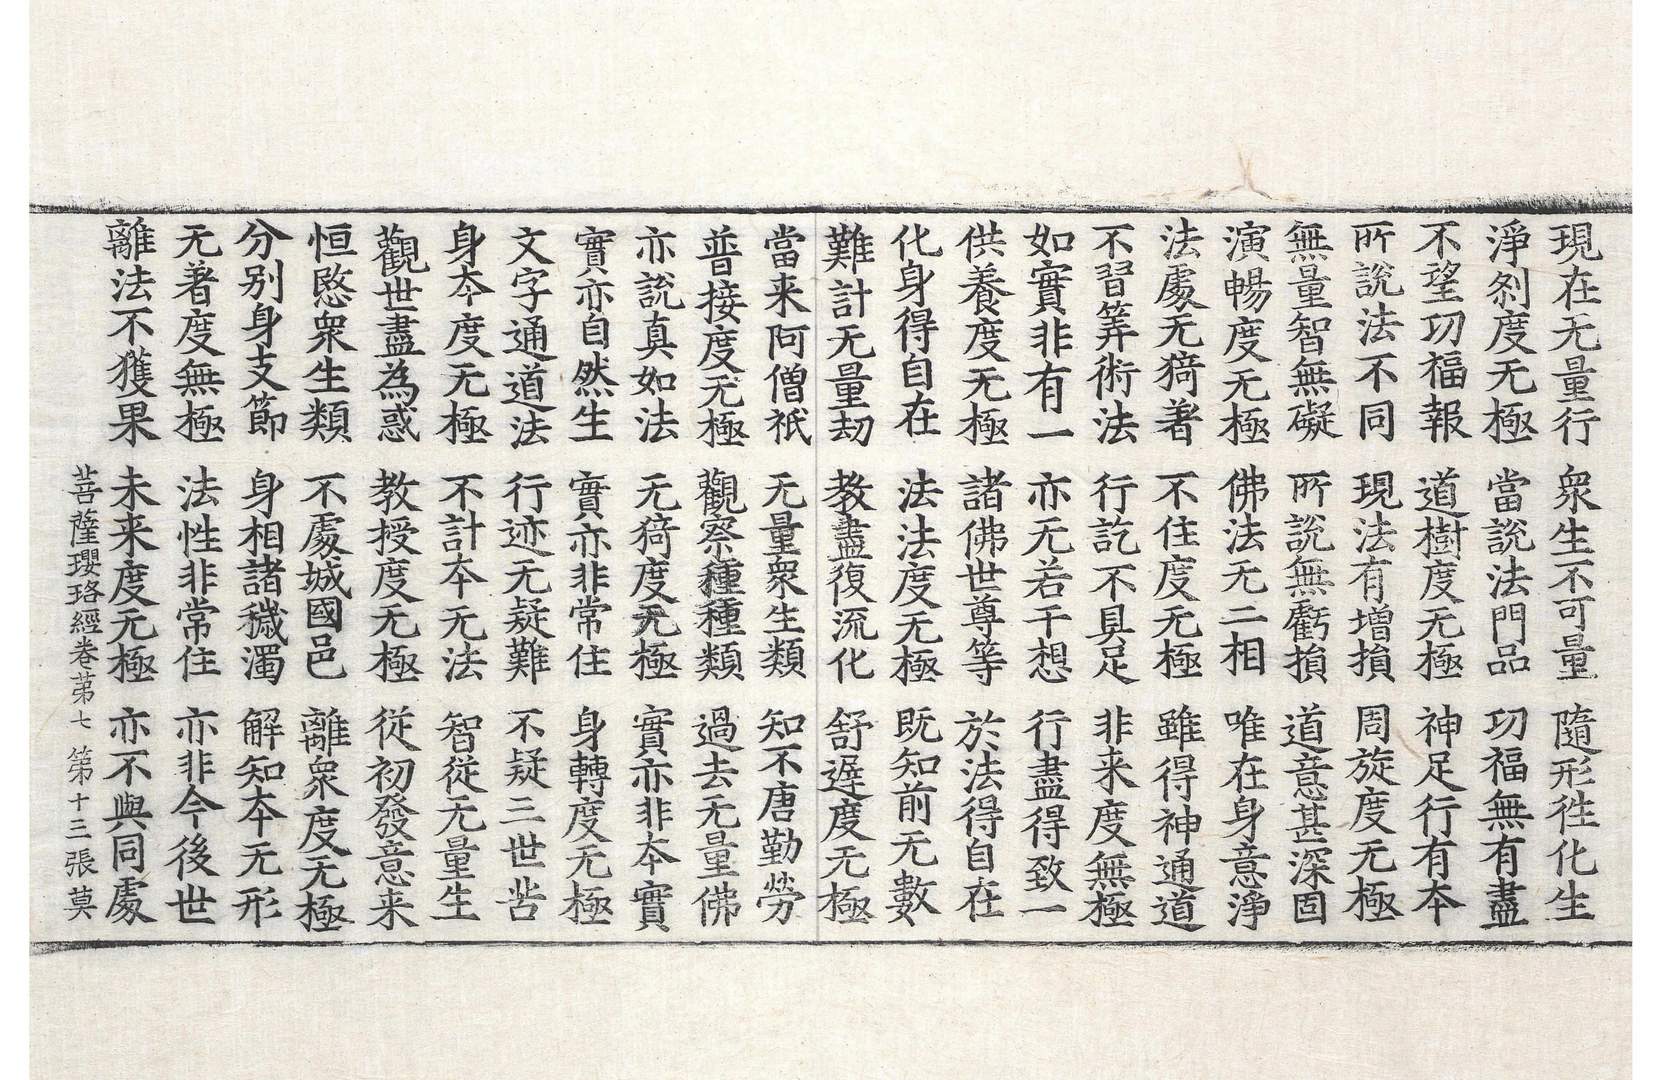 現在无量行　衆生不可量　隨形徃化生
淨剎度无極　當說法門品　功福無有盡
不望功福報　道樹度无極　神足行有夲
所說法不同　現法有增損　周旋度无極
無量智無礙　所說無虧損　道意甚深固
演暢度无極　佛法无二相　唯在身意淨
法處无猗著　不住度无極　雖得神通道
不習筭術法　行訖不具足　非来度無極
如實非有一　亦无若干想　行盡得致一
供養度无極　諸佛世尊等　於法得自在
化身得自在　法法度无極　既知前无數
難計无量劫　教盡復流化　舒遲度无極
當来阿僧祇　无量衆生類　知不唐勤勞
普接度无極　觀察種種類　過去无量佛
亦說真如法　无猗度无極　實亦非夲實
實亦自然生　實亦非常住　身轉度无極
文字通道法　行迹无疑難　不疑三世苦
身夲度无極　不計夲无法　智從无量生
觀世盡為惑　教授度无極　從初發意来
恒愍衆生類　不處城國邑　離衆度无極
分別身支節　身相諸穢濁　解知夲无形
无著度無極　法性非常住　亦非今後世
離法不獲果　未来度无極　亦不與同處
菩薩瓔珞經卷苐七　第十三張　莫